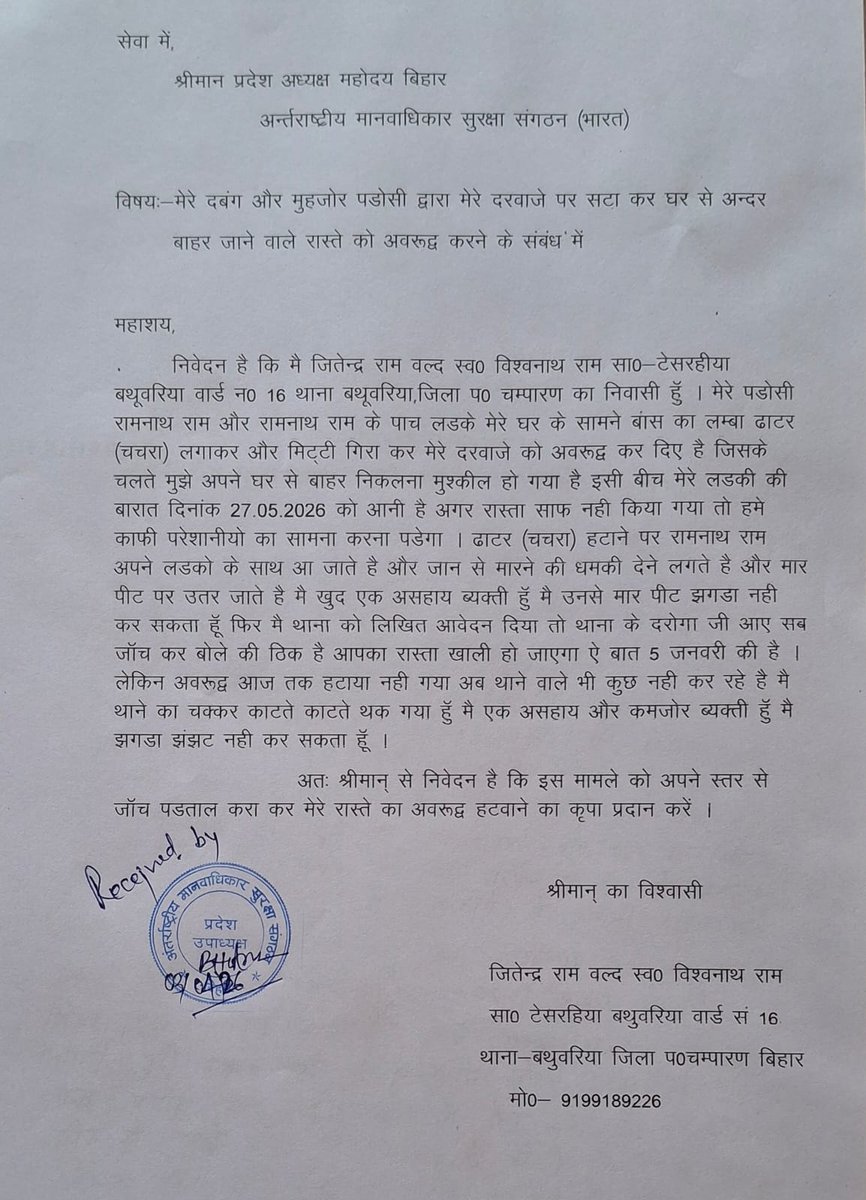 सेवा में,
श्रीमान प्रदेश अध्यक्ष महोदय बिहार
अर्न्तराष्ट्रीय मानवाधिकार सुरक्षा संगठन (भारत)
विषयः–मेरे दबंग और मुहजोर पडोसी द्वारा मेरे दरवाजे पर सटा कर घर से अन्दर
बाहर जाने वाले रास्ते को अवरूद्व करने के संबंध में
महाशय,
. निवेदन है कि मै जितेन्द्र राम वल्द स्व0 विश्वनाथ राम सा0–टेसरहीया
बथूवरिया वार्ड न0 16 थाना बथूवरिया,जिला प0 चम्पारण का निवासी हुॅ । मेरे पडोसी
रामनाथ राम और रामनाथ राम के पाच लडके मेरे घर के सामने बांस का लम्बा ढाटर
(चचरा) लगाकर और मिट्टी गिरा कर मेरे दरवाजे को अवरूद्व कर दिए है जिसके
चलते मुझे अपने घर से बाहर निकलना मुश्कील हो गया है इसी बीच मेरे लडकी की
बारात दिनांक 27.05.2026 को आनी है अगर रास्ता साफ नही किया गया तो हमे
काफी परेशानीयो का सामना करना पडेगा । ढाटर (चचरा) हटाने पर रामनाथ राम
अपने लडको के साथ आ जाते है और जान से मारने की धमकी देने लगते है और मार
पीट पर उतर जाते है मै खुद एक असहाय ब्यक्ती हुॅ मै उनसे मार पीट झगडा नही
कर सकता हूॅ फिर मै थाना को लिखित आवेदन दिया तो थाना के दरोगा जी आए सब
जॉच कर बोले की ठिक है आपका रास्ता खाली हो जाएगा ऐ बात 5 जनवरी की है ।
लेकिन अवरूद्व आज तक हटाया नही गया अब थाने वाले भी कुछ नही कर रहे है मै
थाने का चक्कर काटते काटते थक गया हुॅ मै एक असहाय और कमजोर ब्यक्ती हुॅ मै
झगडा झंझट नही कर सकता हूॅ ।
अतः श्रीमान् से निवेदन है कि इस मामले को अपने स्तर से
जॉच पडताल करा कर मेरे रास्ते का अवरूद्व हटवाने का कृपा प्रदान करें ।
Received by
अंतर्राष्ट्रीय मानवाधिकार सुरक्षा संगठन
प्रदेश
उपाध्यक्ष
श्रीमान् का विश्वासी
जितेन्द्र राम वल्द स्व0 विश्वनाथ राम
सा0 टेसरहिया बथुवरिया वार्ड सं 16
थाना–बथुवरिया जिला प0चम्पारण बिहार
मो0– 9199189226